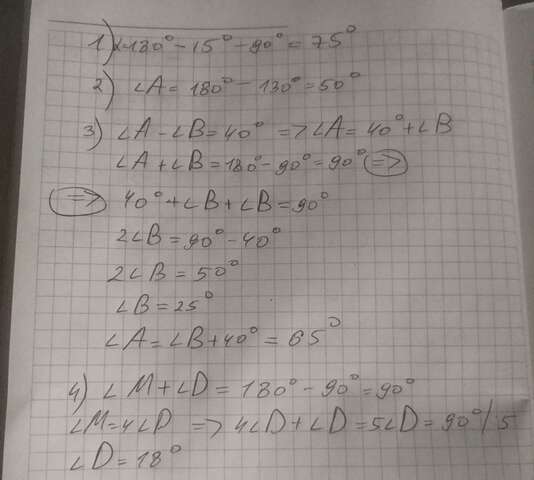 1) x=180°-15°-90°=75°
2) ∠A=180°-130°=50°
3) ∠A-∠B=40° => ∠A=40°+∠B
∠A+∠B=180°-90°=90° =>
=> 40°+∠B+∠B=90°
2∠B=90°-40°
2∠B=50°
∠B=25°
∠A=∠B+40°=65°
4) ∠M+∠D=180°-90°=90°
∠M=4∠D => 4∠D+∠D=5∠D=90°/5
∠D=18°